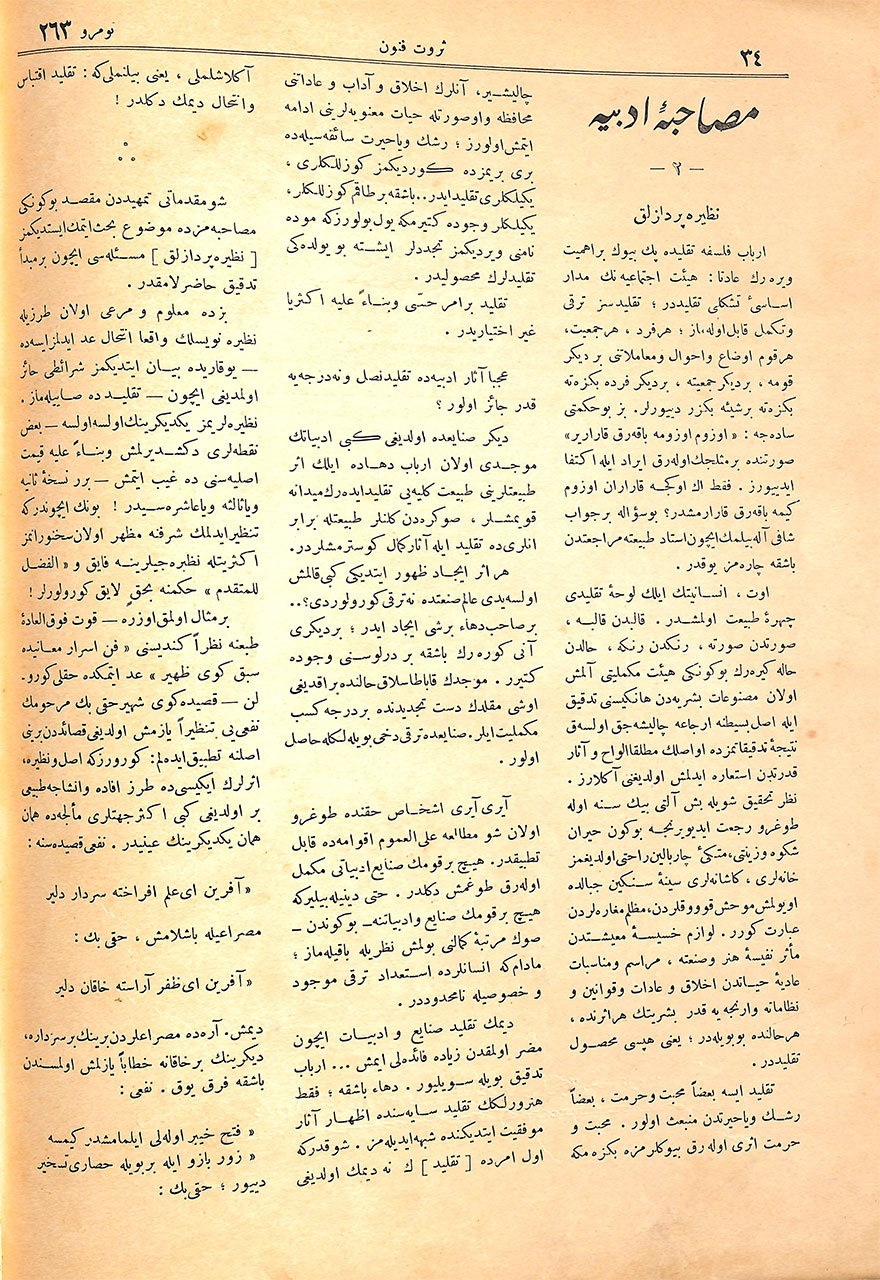 ٣٤
ثروت فنون
نومرو ٢٦٣
مصاحبۀ ادبیه
— ٢ —
نظیره پردازلق
ارباب فلسفه تقلیده پك بیوك براهمیت
ویره رك عادتا : هیئت اجتماعیه نك مدار
اساسیٔ تشکلی تقلیددر ؛ تقلیدسز ترقی
وتکمل قابل اوله‌ماز ؛ هرفرد ، هرجمعیت،
هرقوم اوضاع واحوال ومعاملاتنی بردیکر
قومه ، بردیکر جمعیته ، بردیکر فرده بکزه‌ته
بکزه‌ته برشیئه بکزر دیبورلر. بز بوحکمتی
ساده‌جه : « اوزوم اوزومه باقه‌رق قارایر»
صورتنده برمثلجك اوله‌رق ایراد ایله اکتفا
ایدییورز . فقط اك اوکجه قاراران اوزوم
کیمه باقه‌رق قارارمشدر؟ بوسؤاله برجواب
شافی آله‌بیلمك ایچون استاد طبیعته مراجعتدن
باشقه چاره‌مز یوقدر .
اوت ، انسانیتك ایلك لوحۀ تقلیدی
چهرۀ طبیعت اولمشدر . قالبدن قالبه ،
صورتدن صورته ، رنکدن رنکه ، حالدن
حاله کیره‌رك بوکونکی هیئت مکملیتی آلمش
اولان مصنوعات بشریه‌دن هانکیسنی تدقیق
ایله اصل بسیطنه ارجاعه چالیشه‌جق اولسه‌ق
نتیجۀ تدقیقاتمزده اواصلك مطلقا الواح و آثار
قدرتدن استعاره ایدلمش اولدیغنی آکلارز .
نظر تحقیق شویله بش آلتی بیك سنه اوله
طوغرو رجعت ایدیویرنجه بوکون حیران
شکوه وزینتی، متکیٔ چاربالین راحتی اولدیغمز
خانه‌لری ، کاشانه‌لری سینۀ سنکین جبالده
اویولمش موحش قووقلردن، مظلم مغاره‌لردن
عبارت کورر . لوازم خسیسۀ معیشتدن
مآثر نفیسۀ هنر وصنعته ، مراسم ومناسبات
عادیۀ حیاتدن اخلاق و عادات وقوانین و
نظاماته وارنجه‌یه قدر بشریتك هراثرنده ،
هرحالنده بویویله‌در ؛ یعنی هپسی محصول
تقلیددر .
تقلید ایسه بعضاً محبت وحرمت ، بعضاً
رشك ویاحیرتدن منبعث اولور . محبت و
حرمت اثری اوله‌رق بیوکلرمزه بکزه‌مکه
چالیشیر، آنلرك اخلاق و آداب و عاداتنی
محافظه واوصورتله حیات معنویه‌لرینی ادامه
ایتمش اولورز ؛ رشك ویاحیرت سائقه‌سیله‌ده
بری بریمزده کوردیکمز کوزللکلری ،
یکیلکلری تقلید ایدر.. باشقه برطاقم کوزللکلر،
یکیلکلر وجوده کتیرمکه یول بولورز که موده
نامنی ویردیکمز تجددلر ایشته بو یولده‌کی
تقلیدلرك محصولیدر .
تقلید برامر حسّی وبناءً علیه اکثریا
غیر اختیاریدر .
عجبا آثار ادبیه‌ده تقلید نصل ونه درجه‌یه
قدر جائز اولور ؟
دیکر صنایعده اولدیغی کبی ادبیاتك
موجدی اولان ارباب دهاده ایلك اثر
طبیعتلرینی طبیعت کلیه‌یی تقلید ایده‌رك میدانه
قویمشلر ، صوکره‌دن کلنلر طبیعتله برابر
انلری‌ده تقلید ایله آثار کمال کوسترمشلردر.
هر اثر ایجاد ظهور ایتدیکی کبی قالمش
اولسه‌یدی عالم صنعتده نه ترقی کورولوردی؟..
برصاحب دهاء برشی ایجاد ایدر ؛ بردیکری
آنی کوره‌رك باشقه بر درلوسنی وجوده
کتیرر . موجدك قاباطاسلاق حالنده براقدیغی
اوشی مقلدك دست تجدیدنده بردرجه کسب
مکملیت ایلر. صنایعده ترقی دخی بویله‌لکله حاصل
اولور .
آیری آیری اشخاص حقنده طوغرو
اولان شو مطالعه علی العموم اقوامه‌ده قابل
تطبیقدر. هیچ برقومك صنایع ادبیاتی مکمل
اوله‌رق طوغمش دکلدر . حتی دینیله‌بیلیرکه
هیچ برقومك صنایع وادبیاتنه‌ـ بوکوندن ـ
صوك مرتبۀ کمالنی بولمش نظریله باقیله‌ماز ؛
مادام که انسانلرده استعداد ترقی موجود
و خصوصیله نامحدوددر .
دیمك تقلید صنایع و ادبیات ایچون
مضر اولمقدن زیاده فائده‌لی ایمش ... ارباب
تدقیق بویله سویلیور . دهاء باشقه ؛ فقط
هنرورلکك تقلید سایه‌سنده اظهار آثار
موفقیت ایتدیکنده شبهه ایدیله‌مز . شوقدرکه
اول امرده [ تقلید ] ك نه دیمك اولدیغی
آکلاشلملی ، یعنی بیلنملی که : تقلید اقتباس
وانتحال دیمك دکلدر !
شومقدماتی تمهیددن مقصد بوکونکی
مصاحبه‌مزده موضوع بحث ایتمك ایستدیکمز
[ نظیره پردازلق ] مسئله‌سی ایچون برمبدأ
تدقیق حاضرلامقدر .
بزده معلوم و مرعی اولان طرزیله
نظیره نویسلك واقعا انتحال عد ایدلمزایسه‌ده
— یوقاریده بیان ایتدیکمز شرائطی حائز
اولمدیغی ایچون — تقلید ده صاییله‌ماز .
نظیره‌لریمز یکدیکرینك اولسه اولسه — بعض
نقطه‌لری دکشدیرلمش وبناءً علیه قیمت
اصلیه‌سنی ده غیب ایتمش — برر نسخۀ ثانیه
ویاثالثه ویاعاشره‌سیدر ! بونك ایچوندرکه
تنظیر ایدلمك شرفنه مظهر اولان سخنورانمز
اکثریتله نظیره‌جیلرینه فایق و « الفضل
للمتقدم » حکمنه بحقٍ لایق کورولورلر !
برمثال اولمق اوزره — قوت فوق‌العادۀ
طبعنه نظراً کندیسنی « فن اسرار معانیده
سبق کوی ظهیر » عد ایتمکده حقلی کورو-
لن — قصیده‌کوی شهیر حقی بك مرحومك
نفعی‌یی تنظیراً یازمش اولدیغی قصائددن برینی
اصلنه تطبیق ایده‌لم: کورورزکه اصل ونظیره،
اثرلرك ایکیسی‌ده طرز افاده وانشاجه طبیعی
بر اولدیغی کبی اکثر جهتلری مآلجه‌ده همان
همان یکدیکرینك عینیدر . نفعی قصیده‌سنه :
« آفرین ای علم افراخته سردار دلیر
مصراعیله باشلامش ، حقی بك :
« آفرین ای ظفر آراسته خاقان دلیر
دیمش. آره‌ده مصراعلردن برینك برسرداره،
دیکرینك برخاقانه خطاباً یازلمش اولمسندن
باشقه فرق یوق . نفعی :
« فتح خیبر اوله‌لی ایلمامشدر کیمسه
« زور بازو ایله بربویله حصاری تسخیر
دییور ؛ حقی بك :